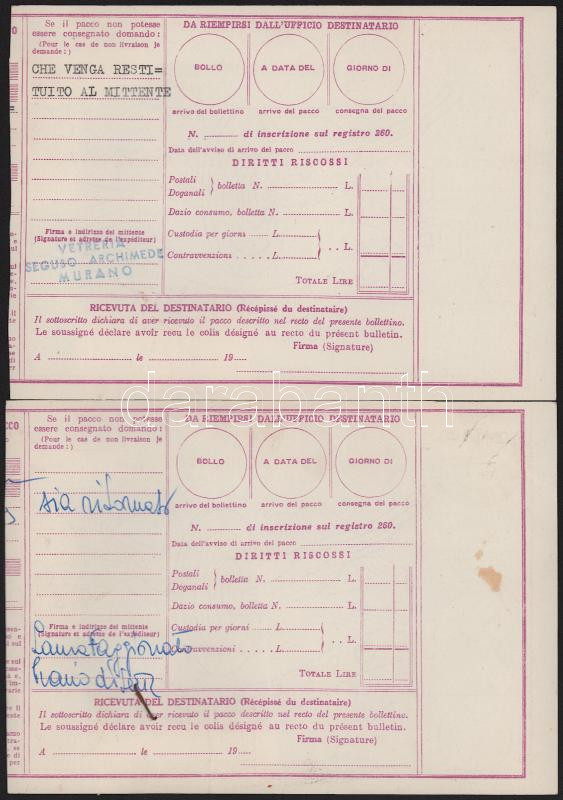 Se il pacco non potesse
essere consegnato domando:
(Pour le cas de non livraison je
demande:)
CHE VENGA RESTI=
TUITO AL MITTENTE
Firma e indirizzo del mittente
(Signature et adresse de l'expéditeur)
VETRERIA
SEGUSO ARCHIMEDE
MURANO
DA RIEMPIRSI DALL'UFFICIO DESTINATARIO
BOLLO A DATA DEL GIORNO DI
arrivo del bollettino arrivo del pacco consegna del pacco
N. ........... di inscrizione sul registro 260.
Data dell'avviso di arrivo del pacco
DIRITTI RISCOSSI
Postali
Doganali } bolletta N. L.
Dazio consumo, bolletta N. L.
Custodia per giorni L.
Contravvenzioni L. } L.
TOTALE LIRE
RICEVUTA DEL DESTINATARIO (Récépissé du destinataire)
Il sottoscritto dichiara di aver ricevuto il pacco descritto nel recto del presente bollettino.
Le soussigné déclare avoir recu le colis désigné au recto du présent bulletin.
Firma (Signature)
A le 19
darabanth
Se il pacco non potesse
essere consegnato domando:
(Pour le cas de non livraison je
demande:)
sia ritornato
Firma e indirizzo del mittente
(Signature et adresse de l'expéditeur)
DA RIEMPIRSI DALL'UFFICIO DESTINATARIO
BOLLO A DATA DEL GIORNO DI
arrivo del bollettino arrivo del pacco consegna del pacco
N. ........... di inscrizione sul registro 260.
Data dell'avviso di arrivo del pacco
DIRITTI RISCOSSI
Postali
Doganali } bolletta N. L.
Dazio consumo, bolletta N. L.
Custodia per giorni L.
Contravvenzioni L. } L.
TOTALE LIRE
RICEVUTA DEL DESTINATARIO (Récépissé du destinataire)
Il sottoscritto dichiara di aver ricevuto il pacco descritto nel recto del presente bollettino.
Le soussigné déclare avoir recu le colis désigné au recto du présent bulletin.
Firma (Signature)
A le 19